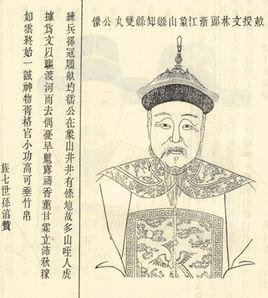 敕授文林郎浙江象山縣知縣雙丸公像
練兵鄒冠履猷均儒公在象山井井有條地故多山
據為文以驅渡河而去偶憂旱魃露禱香薰甘霖立沛秋稼
如雲終始一誠神物胥格官小功高可垂竹帛
族七世孫 贊